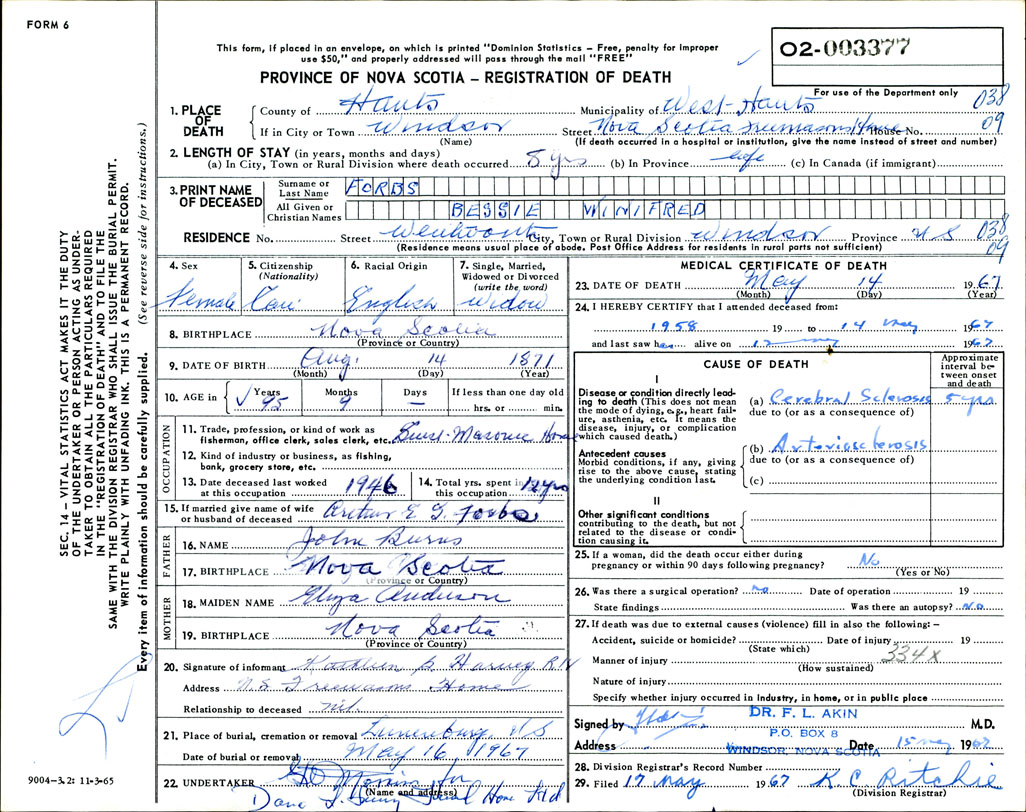 FORM 6
This form, if placed in an envelope, on which is printed "Dominion Statistics – Free, penalty for improper
use $50," and properly addressed will pass through the mail "FREE"
02-003377
PROVINCE OF NOVA SCOTIA – REGISTRATION OF DEATH
For use of the Department only
1. PLACE OF DEATH County of Hants Municipality of West-Hants 038
If in City or Town Windsor Street Nova Scotia Freemasons Home House No. 09
(Name) (If death occurred in a hospital or institution, give the name instead of street and number)
2. LENGTH OF STAY (in years, months and days)
(a) In City, Town or Rural Division where death occurred 5 yrs (b) In Province Life (c) In Canada (if immigrant)
3. PRINT NAME OF DECEASED Surname or Last Name FORBS
All Given or Christian Names BESSIE WINIFRED
RESIDENCE No. Street Wentworth City, Town or Rural Division Windsor Province N S 038
(Residence means usual place of abode. Post Office Address for residents in rural parts not sufficient) 09
4. Sex 5. Citizenship (Nationality) 6. Racial Origin 7. Single, Married, Widowed or Divorced (write the word)
Female Can English Widow
8. BIRTHPLACE Nova Scotia
(Province or Country)
9. DATE OF BIRTH Aug. 14 1871
(Month) (Day) (Year)
10. AGE in Years Months Days If less than one day old
95 9 – hrs. or min.
OCCUPATION
11. Trade, profession, or kind of work as
fisherman, office clerk, sales clerk, etc. Masonic Home
12. Kind of industry or business, as fishing,
bank, grocery store, etc.
13. Date deceased last worked at this occupation 1946 14. Total yrs. spent in this occupation 12 yrs
15. If married give name of wife
or husband of deceased Arthur E G Forbs
FATHER
16. NAME John Burns
17. BIRTHPLACE Nova Scotia
(Province or Country)
MOTHER
18. MAIDEN NAME Eliza Anderson
19. BIRTHPLACE Nova Scotia
(Province or Country)
20. Signature of informant Kathleen G Harvey RN
Address N.S Freemasons Home
Relationship to deceased nil
21. Place of burial, cremation or removal Lunenburg, N S
Date of burial or removal May 16, 1967
22. UNDERTAKER for
(Name and address)
Home Ltd
MEDICAL CERTIFICATE OF DEATH
23. DATE OF DEATH May 14 1967
(Month) (Day) (Year)
24. I HEREBY CERTIFY that I attended deceased from:
1958 19 to 14 May 1967
and last saw her alive on 12 May 1967
CAUSE OF DEATH
Approximate interval between onset and death
I
Disease or condition directly leading
to death (This does not mean
the mode of dying, e.g., heart failure,
asthenia, etc. it means the
disease, injury, or complication
which caused death.)
(a) Cerebral Sclerosis 5 yrs
due to (or as a consequence of)
Antecedent causes
Morbid conditions, if any, giving
rise to the above cause, stating
the underlying condition last.
(b) Arteriosclerosis
due to (or as a consequence of)
(c)
II
Other significant conditions
contributing to the death, but not
related to the disease or condition
causing it.
25. If a woman, did the death occur either during
pregnancy or within 90 days following pregnancy? No
(Yes or No)
26. Was there a surgical operation? no Date of operation 19
State findings Was there an autopsy? No
27. If death was due to external causes (violence) fill in also the following: –
Accident, suicide or homicide? Date of injury 19
(State which) 334x
Manner of injury
(How sustained)
Nature of injury
Specify whether injury occurred in Industry, in home, or in public place
Signed by DR. F. L. AKIN M.D.
P.O. BOX 8
Address WINDSOR, NOVA SCOTIA Date 15 May 1967
28. Division Registrar's Record Number
29. Filed 17 May 1967 K. C. Ritchie
(Division Registrar)
SEC. 14 – VITAL STATISTICS ACT MAKES IT THE DUTY
OF THE UNDERTAKER OR PERSON ACTING AS UNDERTAKER
TO OBTAIN ALL THE PARTICULARS REQUIRED
IN THE "REGISTRATION OF DEATH" AND TO FILE THE
SAME WITH THE DIVISION REGISTRAR WHO SHALL ISSUE THE BURIAL PERMIT.
WRITE PLAINLY WITH UNFADING INK. THIS IS A PERMANENT RECORD.
Every item of information should be carefully supplied. (See reverse side for instructions.)
9004–3.2: 11-3-65